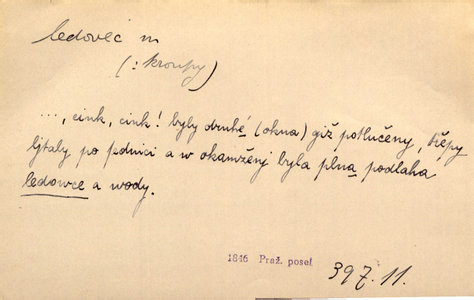 ledovec m
(: kroupy)
..., cink, cink! byly druhé (okna) giž potlučeny, třepy
ljtaly po sednici a w okamženj byla plna podlaha
ledowce a wody.
1846 Praž. posel
397. 11.